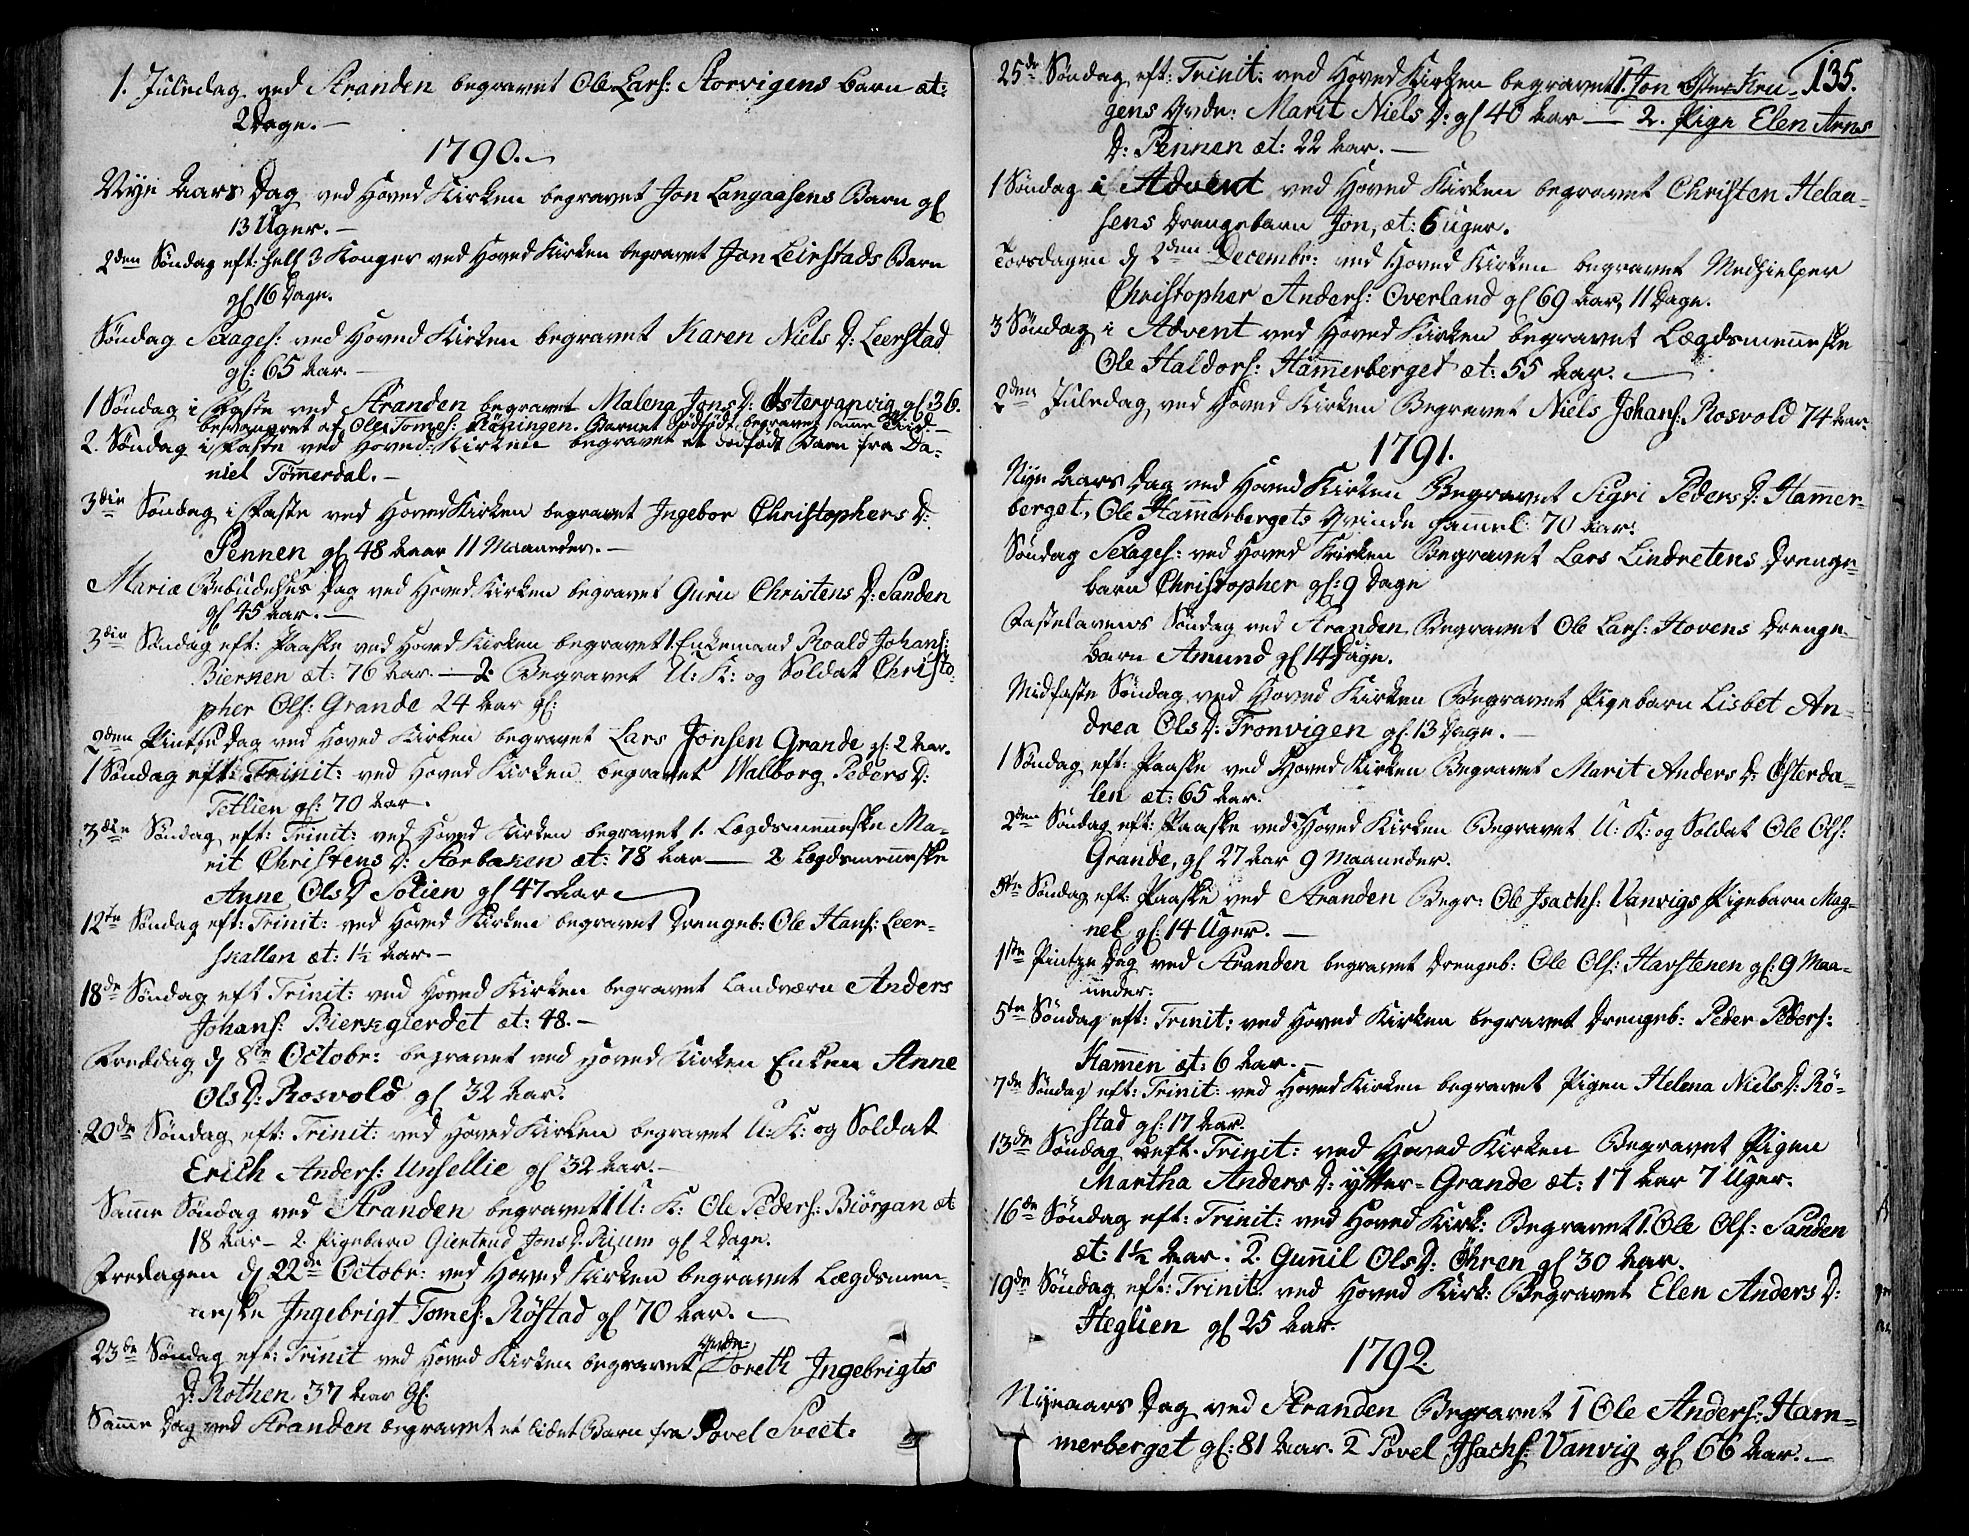 1. Juledag ved Stranden begravet Ole Lars: Storvigens Barn æt:
2 Dage. –
1790. –
Nye Aars Dag ved Hoved Kirken begravet Jon Langaasens Barn gl
13 Uger. –
2den Søndag eft: hell 3 Konger ved Hoved Kirken begravet Jon Leirstads Barn
gl 16 Dage.
Søndag Sexages: ved Hoved Kirken begravet Karen Niels D: Leerstad
gl: 65 Aar. –
1 Søndag i Faste ved Stranden begravet Malena Jons D: Østervanvig gl 36.
besvangret af Ole Tomes: Barnet dødfødt begravet samme Tiid –
2. Søndag i Faste ved Hoved-Kirken begravet et dødfødt Barn fra Da-
niel Tømmerdal. –
3die Søndag i Faste ved Hoved Kirken begravet Ingebor Christophers D:
Pennen gl 48 Aar 11 Maaneder. –
Mariæ Bebudelses Dag ved Hoved Kirken begravet Guru Christens D: Sanden
gl 45 Aar. –
3die Søndag eft: Paaske ved Hoved Kirken begravet 1. Enkemand Roald Johans:
Bierken æt: 76 Aar. – 2. Begravet U: K: og Soldat Christo
pher Ols: Grande 24 Aar gl:
2den Pintse Dag ved Hoved Kirken begravet Lars Jonsen Grande gl: 2 Aar.
1 Søndag eft: Trinit: ved Hoved Kirken begravet Walborg Peders D:
Tetlien gl: 70 Aar.
3die Søndag eft: Trinit: ved Hoved Kirken begravet 1. Lægdsmenneske Ma-
rit Christens D: Storbaken æt: 78 Aar — 2 Lægdsmenneske
Anne Ols D Solien gl 47 Aar
12te Søndag eft: Trinit: ved Hoved Kirken begravet Drengeb: Ole Hans: Leer-
skallen æt: 1½ Aar. –
18de Søndag eft Trinit: ved Hoved Kirken begravet Landværn Anders
Johans: Bierkgierdet æt: 48. –
Freddag d 8te Octobr: begravet ved Hoved Kirken Enken Anne
Ols D: Rosvold gl 32 Aar.
20de Søndag eft: Trinit: ved Hoved Kirken begravet U: K: og Soldat
Erich Anders: Unsellie gl 32 Aar. –
Samme Søndag ved Stranden begravet 1 U: K: Ole Peders: Biörgan æt
18 Aar – 2. Pigebarn Giertrud Jons D: gl 2 Dage.
Fredagen d 22de Octobr: ved Hoved Kirken begravet Lægdsmen-
neske Ingebrigt Tomes: Röstad gl 70 Aar. –
23de Søndag eft: Trinit ved Hoved Kirken begravet Qvde: Doreth Ingebrigts
D: Rothen 37 Aar gl:
Samme Dag ved Stranden begravet et lidet Barn fra Povel Sveet:
135.
25de Søndag eft: Trinit: ved Hoved Kirken begravet 1. Jon Øster Keu-
gens Qvde: Marit Niels D: gl 40 Aar — 2. Pige Elen Arns
D: Pennen æt: 22 Aar. –
1 Søndag i Advent ved Hoved Kirken begravet Christen Helaa-
sens Drengebarn Jon, æt: 6 uger.
Torsdagen d 2den Decembr: ved Hoved Kirken begravet Medhielper
Christopher Anders: Overland gl 69 Aar, 11 Dage.
3 Søndag i Advent ved Hoved Kirken begravet Lægdsmenneske
Ole Haldors: Hammerberget æt: 55 Aar. –
2den Juledag ved Hoved Kirken Begravet Niels Johans: Rosvold 74 Aar.
1791.
Nye Aars Dag ved Hoved Kirken Begravet Sigri Peders D: Hammer-
berget, Ole Hammerbergets Qvinde gammel: 70 Aar.
Søndag Sexages: ved Hoved Kirken Begravet Lars Lindretens Drenge-
barn Christopher gl: 9 Dage
Fastelavens Søndag ved Stranden Begravet Ole Lars: Hovens Drenge-
barn Amund gl 14 Dage.
Midfaste Søndag ved Hoved Kirken Begravet Pigebarn Lisbet An-
drea Ols D: Tronvigen gl: 13 Dage. –
1 Søndag eft: Paaske ved Hoved Kirken Begravet Marit Anders D: Østerda-
len æt: 65 Aar.
2den Søndag eft: Paaske ved Hoved Kirken Begravet U: K: og Soldat Ole Ols:
Grande, gl 27 Aar 9 Maaneder.
5te Søndag eft: Paaske ved Stranden Begr: Ole Isachs: Vanvigs Pigebarn Mag-
nel gl: 14 Uger. –
1ste Pintse Dag ved Stranden begravet Drengeb: Ole Ols: Havstenen gl: 9 Maa-
neder.
5te Søndag eft: Trinit: ved Hoved Kirken begravet Drengeb: Peder Peders:
Hammen æt: 6 Aar. –
7de Søndag eft: Trinit: ved Hoved Kirken begravet Pigen Helena Niels D: Rö-
stad gl: 17 Aar.
13de Søndag eft. Trinit: ved Hoved Kirken Begravet Pigen
Martha Anders D: ytter-Grande æt: 17 Aar 7 Uger.
16de Søndag eft: Trinit: ved Hoved Kirk: Begravet 1. Ole Ols: Sanden
æt: 1½ Aar. 2. Gunnil Ols D: Öhren gl 30 Aar.
19de Søndag eft: Trinit: ved Hoved Kirk: Begravet Elen Anders D:
Heglien gl 25 Aar.
1792.
Nyeaars Dag ved Stranden Begravet 1 Ole Anders: Ham-
merberget gl: 81 Aar. 2 Povel Isachs: Vanvig gl 66 Aar. –